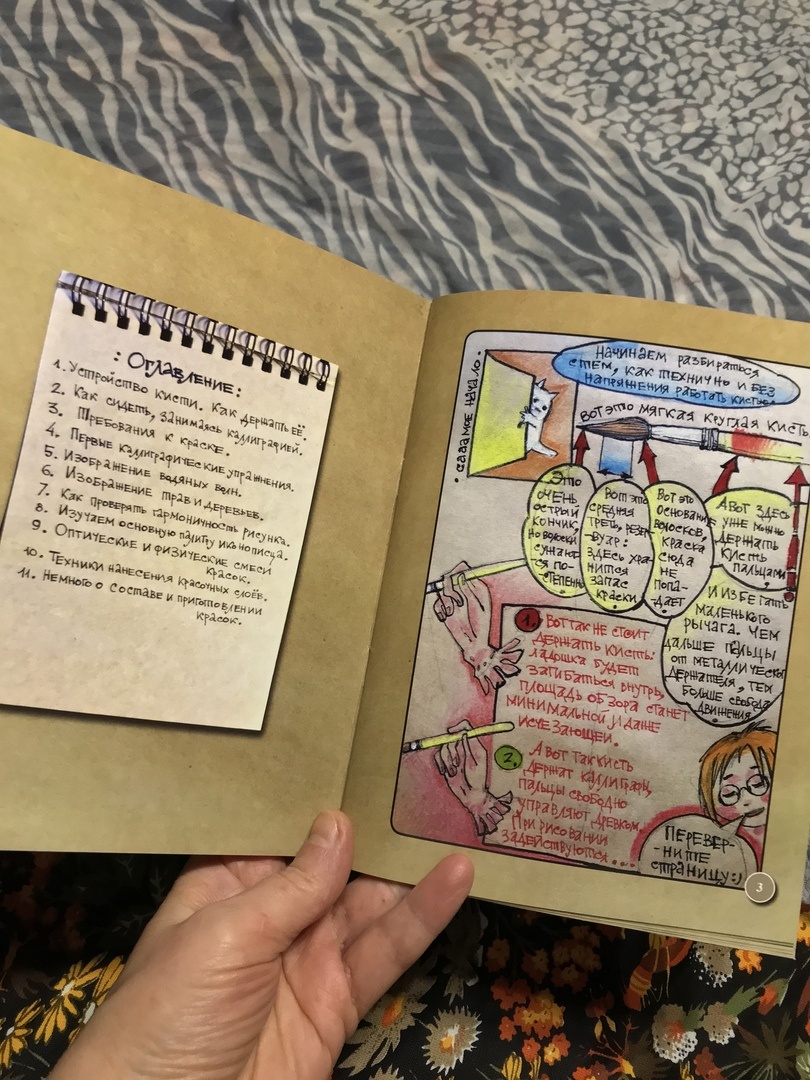 : Оглавление:
1. Устройство кисти. Как держать её.
2. Как сидеть, занимаясь каллиграфией.
3. Требования к краске.
4. Первые каллиграфические упражнения.
5. Изображение водяных волн.
6. Изображение трав и деревьев.
7. Как проверять гармоничность рисунка.
8. Изучаем основную палитру иконописца.
9. Оптические и физические смеси
красок.
10. Техники нанесения красочных слоёв.
11. Немного о составе и приготовлении
красок.
• Сааамое начало.
Начинаем разбираться
с тем, как технично и без
напряжения работать кистью.
Вот это мягкая круглая кисть
Это
очень
острый
кончик
Но волоски
сужают-
ся по-
степенно
Вот это
средняя
треть, резер-
-вуар:
здесь хра-
нится
запас
краски.
Вот это
основание
волосков,
краска
сюда
не
попа-
-дает
А вот здесь
уже можно
держать
кисть
пальцами
и избегать
маленького
рычага. Чем
дальше пальцы
от металлическ
держателя, тем
больше свобода
движения
1. Вот так не стоит
держать кисть:
ладошка будет
загибаться внутрь,
площадь обзора станет
минимальной и даже
исчезающей.
2. А вот так кисть
держат каллиграфы,
пальцы свободно
управляют древком.
При рисовании
задействуются....
Перевер-
-ните
страницу:)
3